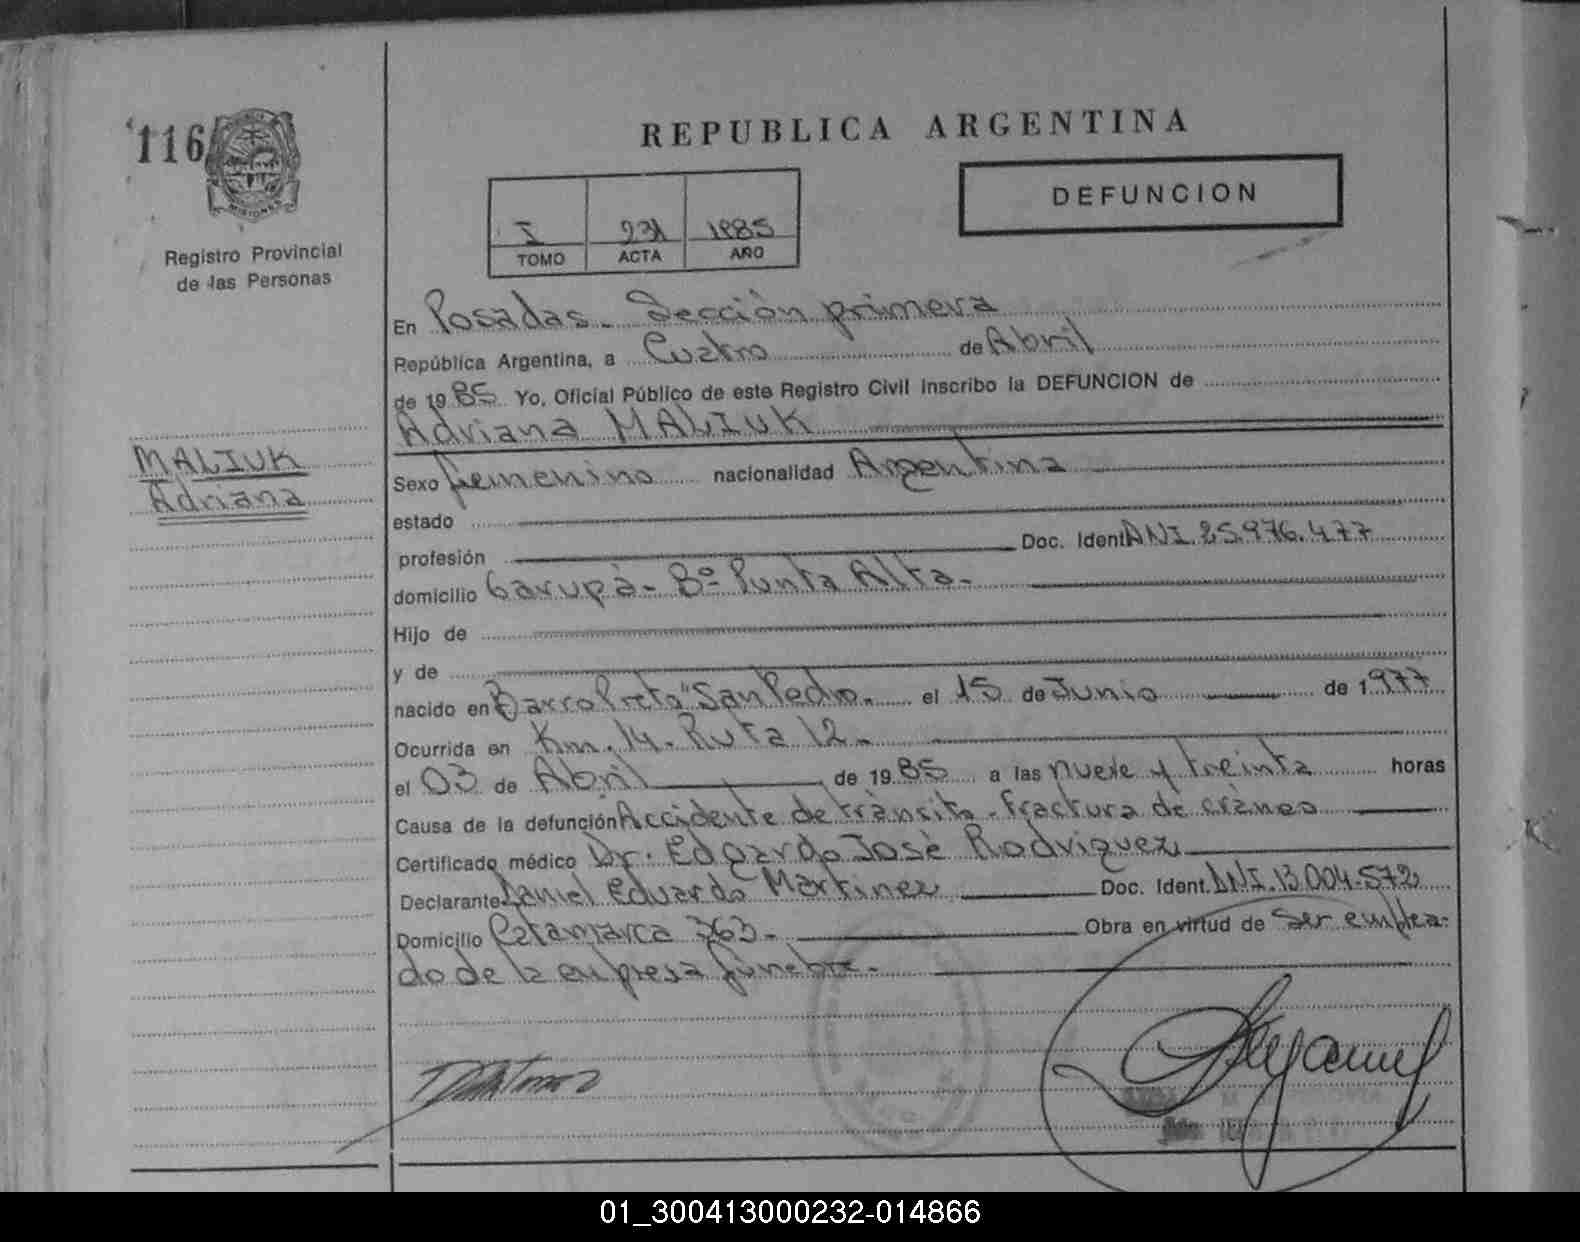 116
MISIONES
Registro Provincial
de las Personas
MALIUK
Adriana
REPUBLICA ARGENTINA
I 231 1985
TOMO ACTA AÑO
DEFUNCION
En Posadas. Sección primera
República Argentina, a Cuatro de Abril
de 1985 Yo, Oficial Público de este Registro Civil inscribo la DEFUNCION de
Adriana MALIUK
Sexo femenino nacionalidad Argentina
estado
profesión Doc. Ident. DNI. 25.976.477
domicilio Garupá - Bº Punta Alta.
Hijo de
y de
nacido en Barro Preto "San Pedro. el 15 de Junio de 1977
Ocurrida en Km. 14. Ruta 12.
el 03 de Abril de 1985 a las nueve y treinta horas
Causa de la defunción Accidente de trànsito - fractura de cràneo
Certificado médico Dr. Edgardo Josè Rodriguez
Declarante Daniel Eduardo Martinez Doc. Ident. DNI. 13.004.572
Domicilio Catamarca 363. Obra en virtud de ser emplea-
do de la empresa fúnebre.
01_300413000232-014866